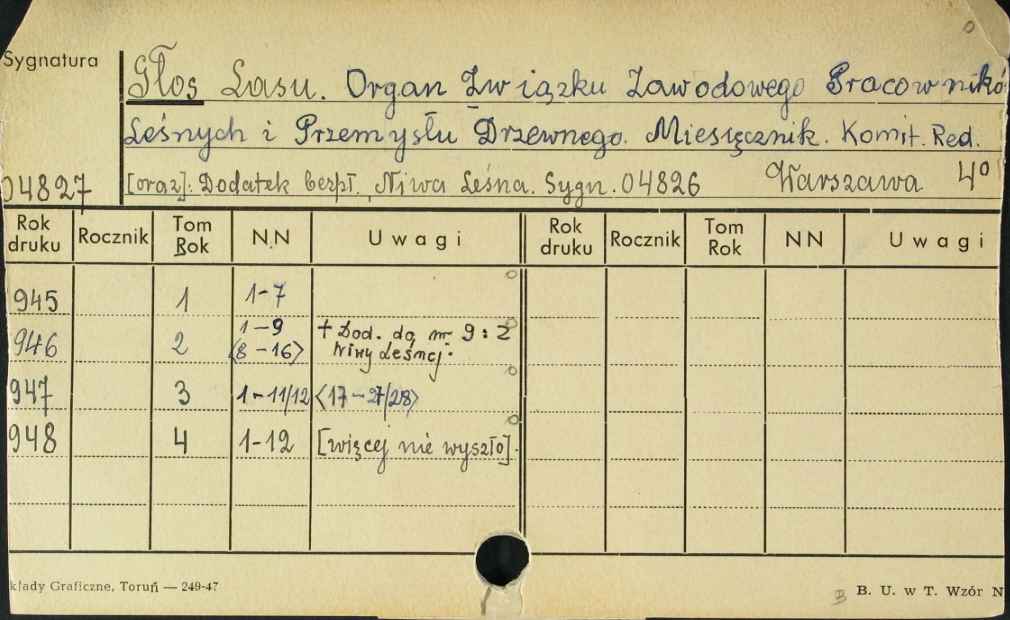 Sygnatura
Głos Lasu. Organ Związku Zawodowego Pracownikó
Leśnych i Przemysłu Drzewnego. Miesięcznik. Komit. Red.
04827 [oraz]: Dodatek bezpł. Niwa Leśna. Sygn. 04826 Warszawa 4º
Rok druku Rocznik Tom Rok N.N Uwagi Rok druku Rocznik Tom Rok NN Uwagi
945 1 1-7
946 2 1-9 <8-16> + Dod. do nr 9: 2 Niwy Leśnej.
947 3 1-11/12 <17-27/28>
948 4 1-12 [więcej nie wyszło].
kłady Graficzne, Toruń — 249-47
B. U. w T. Wzór N